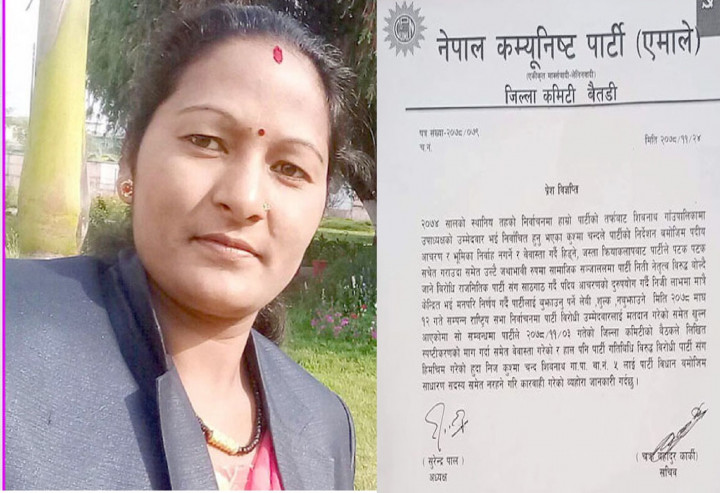 नेपाल कम्युनिष्ट पार्टी (एमाले)
(एकीकृत मार्क्सवादी-लेनिनवादी)
जिल्ला कमिटी बैतडी
पत्र संख्या-२०७८/०७९
मिति २०७८/११/२४
च.न.
प्रेश विज्ञप्ति
२०७४ सालको स्थानिय तहको निर्वाचनमा हाम्रो पार्टीको तर्फबाट शिवनाथ गाँउपालिकामा
उपाध्यक्षको उम्मेद्वार भई निर्वाचित हुनु भएका कुश्मा चन्दले पार्टीको निर्देशन बमोजिम पदीय
आचरण र भुमिका निर्वाह नगर्ने र बेवास्ता गर्दै हिड्ने, जस्ता क्रियाकलापबाट पार्टीले पटक पटक
सचेत गराउदा समेत उल्टै जथाभावी रुपमा सामाजिक सञ्जालमा पार्टी निती नेतृत्व विरुद्द बोल्दै
जाने विरोधि राजनितिक पार्टी संग साठगाठ गर्दै पदिय आचरणको दुरुपयोग गर्दै निजी लाभमा मात्रै
केन्द्रित भई मनपरि निर्णय गर्दै पार्टीलाई बुझाउनु पर्ने लेवी ,शुल्क नबुझाउने मिति २०७८ माघ
१२ गते सम्पन्न राष्ट्रिय सभा निर्वाचनमा पार्टी विरोधी उम्मेदवारलाई मतदान गरेको समेत खुल्न
आएकोमा सो सम्बन्धमा पार्टीले २०७८/११/०३ गतेको जिल्ला कमिटीको बैठकले लिखित
स्पष्टीकरणको माग गर्दा समेत बेवास्ता गरेको र हाल पनि पार्टी गतिविधि विरुद्द विरोधी पार्टी संग
हिमचिम गरेको हुदा निज कुश्मा चन्द शिवनाथ गा.पा. वा.नं. ५ लाई पार्टी विधान बमोजिम
साधारण सदस्य समेत नरहने गरि कारवाही गरेको व्यहोरा जानकारी गर्दछु ।
( सुरेन्द्र पाल )
बहादुर कार्की )
अध्यक्ष
सचिव